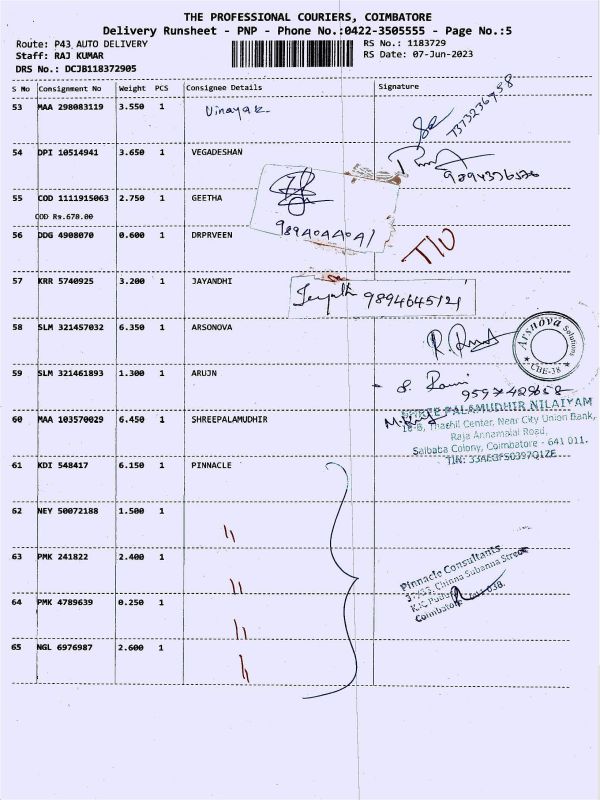 THE PROFESSIONAL COURIERS, COIMBATORE
Delivery Runsheet - PNP - Phone No.:0422-3505555 - Page No.:5
Route: P43 AUTO DELIVERY
RS No.: 1183729
Staff: RAJ KUMAR
RS Date: 07-Jun-2023
DRS No.: DCJB118372905
S No Consignment No Weight PCS Consignee Details Signature
53 MAA 298083119 3.550 1 Vinayak
54 DPI 10514941 3.650 1 VEGADESHAN
55 COD 1111915063 2.750 1 GEETHA
COD Rs.670.00
9894044041
56 DDG 4908070 0.600 1 DRPRVEEN
57 KRR 5740925 3.200 1 JAYANDHI
9894645121
58 SLM 321457032 6.350 1 ARSONOVA
Arsnova Solutions
★ CBE-38 ★
59 SLM 321461893 1.300 1 ARUJN
60 MAA 103570029 6.450 1 SHREEPALAMUDHIR
SHREE PALAMUDHIR NILAIYAM
Thachil Center, Near City Union Bank,
Raja Annamalai Road,
Saibaba Colony, Coimbatore - 641 011.
TIN: 33AEGFS0397Q1ZE
61 KDI 548417 6.150 1 PINNACLE
62 NEY 50072188 1.500 1 "
63 PMK 241822 2.400 1 "
Pinnacle Consultants
Chinna Subanna Street
K.K. Pudur
Coimbatore
64 PMK 4789639 0.250 1 "
65 NGL 6976987 2.600 1 "